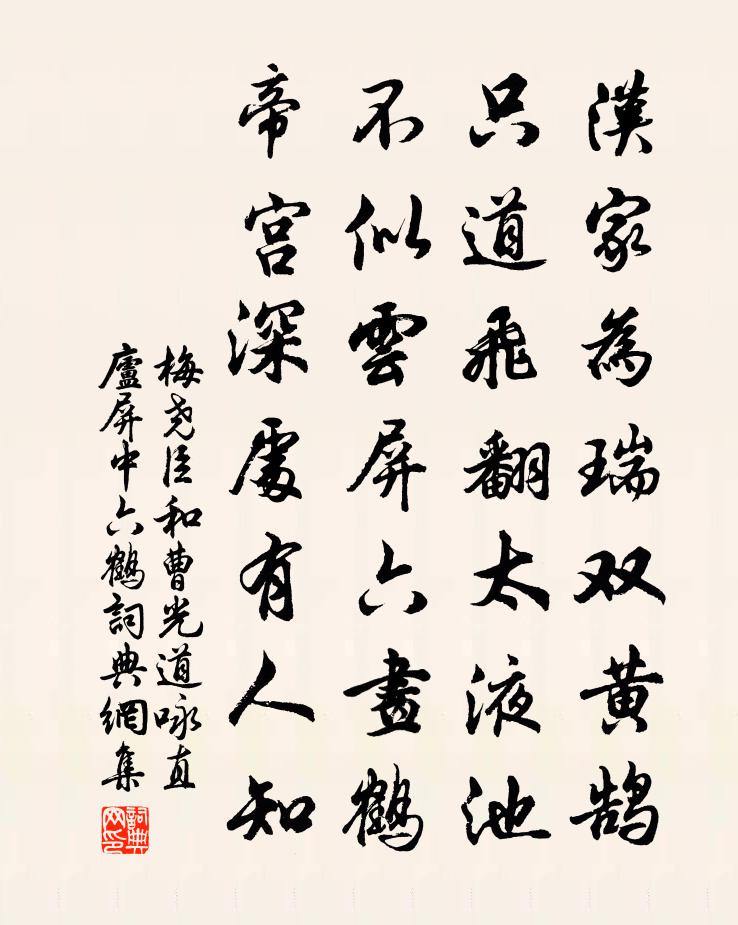 漢家為瑞双黄鹄
只道飛翻太液池
不似雲屏六畫鶴
帝宫深處有人知
梅尧臣和曹光道咏直
廬屏中六鶴詞典網集
詞典網印